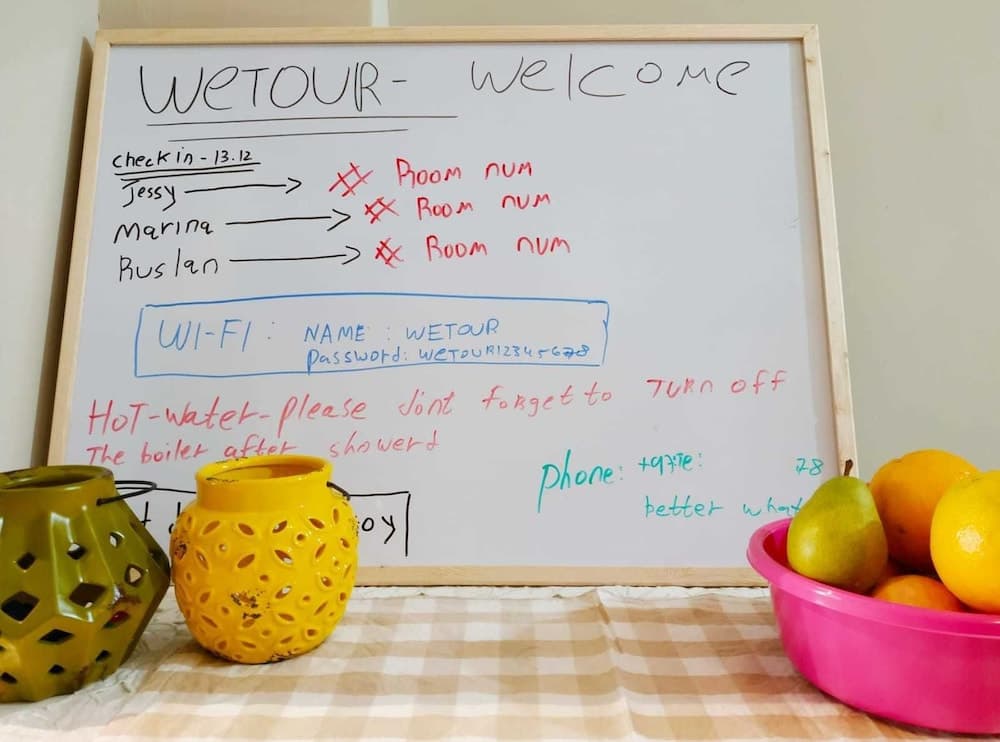 WETOUR- Welcome
Check in - 13.12
Jessy → # Room num
Marina → # Room num
Ruslan → # Room num
WI-FI: NAME: WETOUR
Password: WETOUR12345678
HOT-Water-please dont forget to TURN off
The boiler after showerd
phone: 78
better what
oy